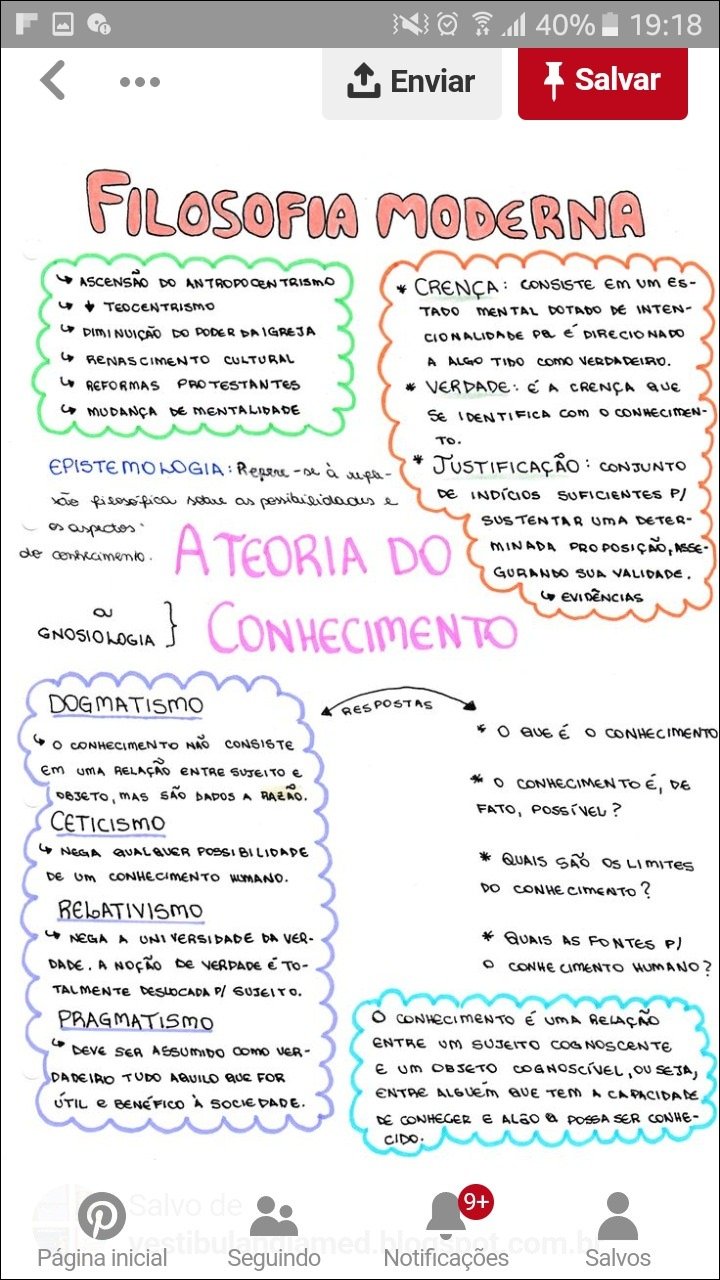 40% 19:18
Enviar
Salvar
FILOSOFIA MODERNA
↳ ASCENSÃO DO ANTROPOCENTRISMO
↳ ↓ TEOCENTRISMO
↳ DIMINUIÇÃO DO PODER DA IGREJA
↳ RENASCIMENTO CULTURAL
↳ REFORMAS PROTESTANTES
↳ MUDANÇA DE MENTALIDADE
* CRENÇA: CONSISTE EM UM ES-
TADO MENTAL DOTADO DE INTEN-
CIONALIDADE PQ É DIRECIONADO
A ALGO TIDO COMO VERDADEIRO.
* VERDADE: É A CRENÇA QUE
SE IDENTIFICA COM O CONHECIMEN-
TO.
* JUSTIFICAÇÃO: CONJUNTO
DE INDÍCIOS SUFICIENTES P/
SUSTENTAR UMA DETER-
MINADA PROPOSIÇÃO, ASSE-
GURANDO SUA VALIDADE.
↳ EVIDÊNCIAS
EPISTEMOLOGIA: Refere-se à refle-
xão filosófica sobre as possibilidades e
os aspectos
do conhecimento.
A TEORIA DO
CONHECIMENTO
OU
GNOSIOLOGIA }
DOGMATISMO
↳ O CONHECIMENTO NÃO CONSISTE
EM UMA RELAÇÃO ENTRE SUJEITO E
OBJETO, MAS SÃO DADOS A RAZÃO.
CETICISMO
↳ NEGA QUALQUER POSSIBILIDADE
DE UM CONHECIMENTO HUMANO.
RELATIVISMO
↳ NEGA A UNIVERSIDADE DA VER-
DADE. A NOÇÃO DE VERDADE É TO-
TALMENTE DESLOCADA P/ SUJEITO.
PRAGMATISMO
↳ DEVE SER ASSUMIDO COMO VER-
DADEIRO TUDO AQUILO QUE FOR
ÚTIL E BENÉFICO À SOCIEDADE.
RESPOSTAS
* O QUE É O CONHECIMENTO
* O CONHECIMENTO É, DE
FATO, POSSÍVEL?
* QUAIS SÃO OS LIMITES
DO CONHECIMENTO?
* QUAIS AS FONTES P/
O CONHECIMENTO HUMANO?
O CONHECIMENTO É UMA RELAÇÃO
ENTRE UM SUJEITO COGNOSCENTE
E UM OBJETO COGNOSCÍVEL, OU SEJA,
ENTRE ALGUÉM QUE TEM A CAPACIDADE
DE CONHECER E ALGO Q POSSA SER CONHE-
CIDO.
Salvo de
vestibulandiamed.blogspot.com.br
9+
Página inicial
Seguindo
Notificações
Salvos